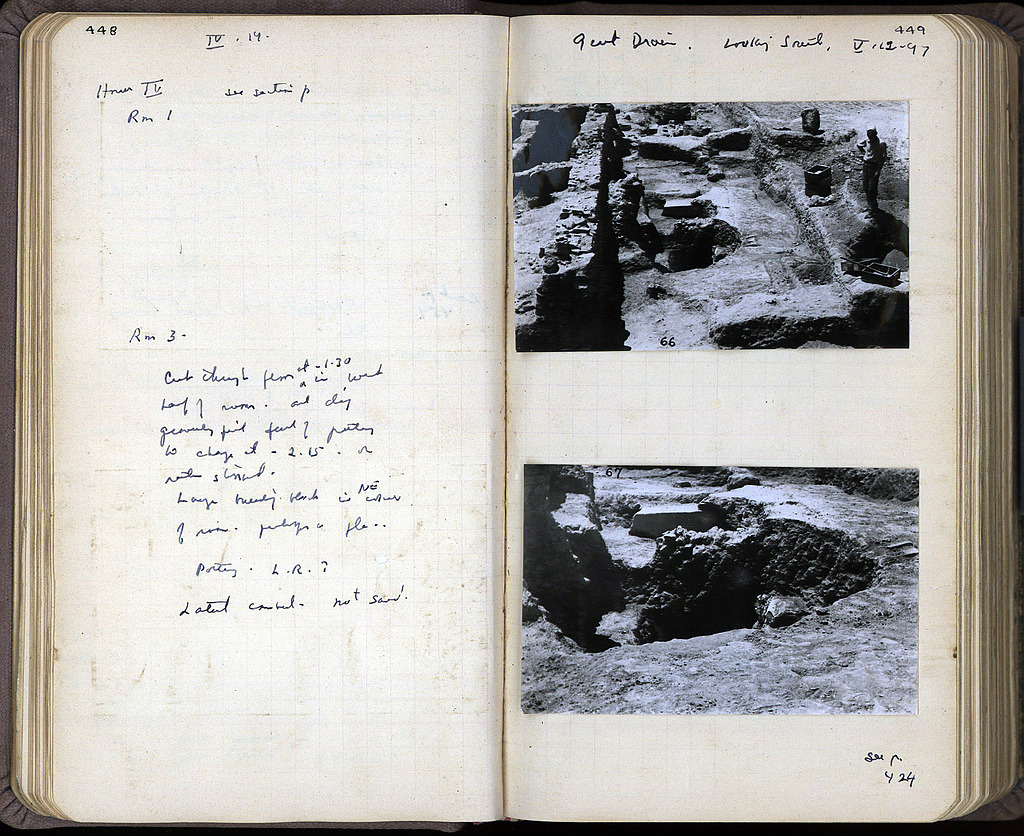 448
IV . 14.
House IV see section p
Rm 1
Rm 3 -
Cut through floor at -1.30 in west
half of room. and dig
fill of pottery
to change at - 2.15. or
Large block in NE corner
of room. perhaps a
Pottery. L.R.?
Latest not saved.
449
Great Drain. Looking South, V.12-97
66
67
see p.
424